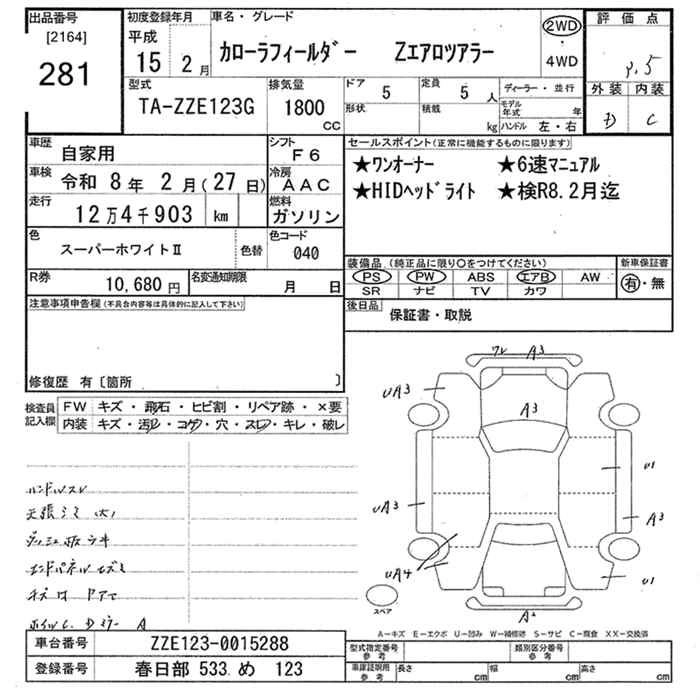 出品番号
[2164]
281
初度登録年月
平成
15 2月
車名・グレード
カローラフィールダー Zエアロツアラー
2WD
・
4WD
評価点
外装 内装
D C
型式
TA-ZZE123G
排気量
1800
CC
ドア
5
形状
定員
5人
積載
kg
ディーラー・並行
モデル年式 年
ハンドル 左・右
車歴
自家用
シフト
F6
車検
令和 8年 2月(27日)
冷房
AAC
走行
12万4千903 km
燃料
ガソリン
色
スーパーホワイトⅡ
色替
色コード
040
R券
10,680円
名変通知期限
月 日
セールスポイント(正常に機能するものに限ります)
★ワンオーナー ★6速マニュアル
★HIDヘッドライト ★検R8.2月迄
装備品(純正品に限り〇をつけてください)
PS PW ABS エアB AW
SR ナビ TV カワ
新車保証書
有・無
後日品
保証書・取説
注意事項申告欄(不具合内容等は具体的に記入して下さい)
修復歴 有〔箇所 〕
検査員記入欄
FW キズ・飛石・ヒビ割・リペア跡・×要
内装 キズ・汚レ・コゲ・穴・スレ・キレ・破レ
ハンドルスレ
ワレ A3
UA3
A3
U1
UA3
A3
UA4
U1
A2
スペア
A-キズ E-エクボ U-凹み W-補修跡 S-サビ C-腐食 XX-交換済
車台番号
ZZE123-0015288
登録番号
春日部 533 め 123
型式指定番号
参考
類別区分番号
参考
車庫証明用
参考
長さ cm 幅 cm 高さ cm